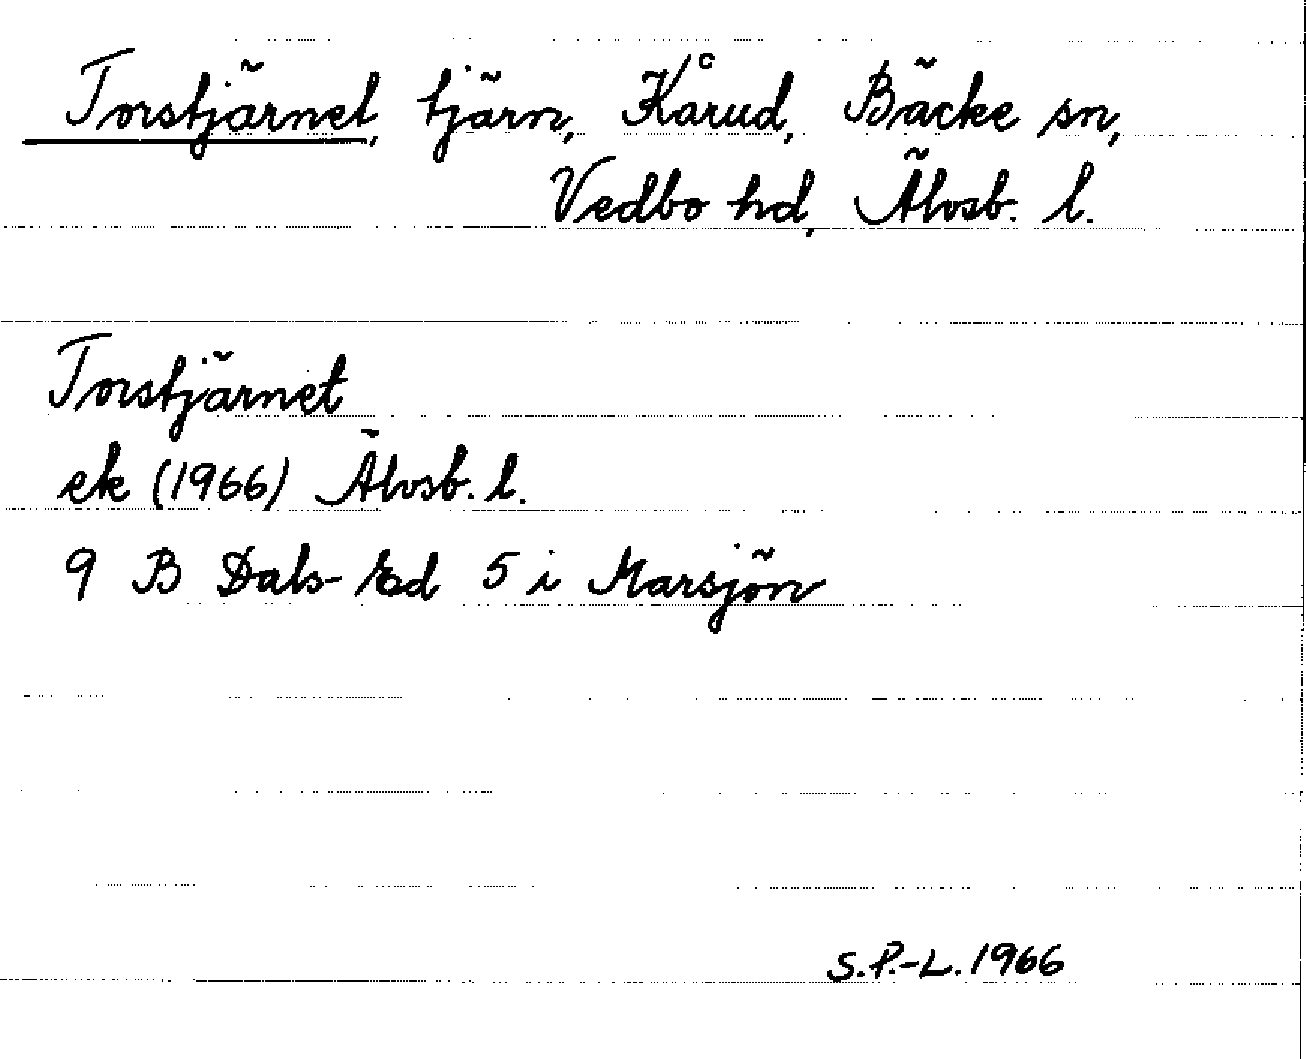 Torstjärnet, tjärn, Kårud, Bäcke sn,
Vedbo hd, Älvsb. l.
Torstjärnet
ek (1966) Älvsb. l.
9 B Dals-Ed 5 i Marsjön
S.P.-L. 1966